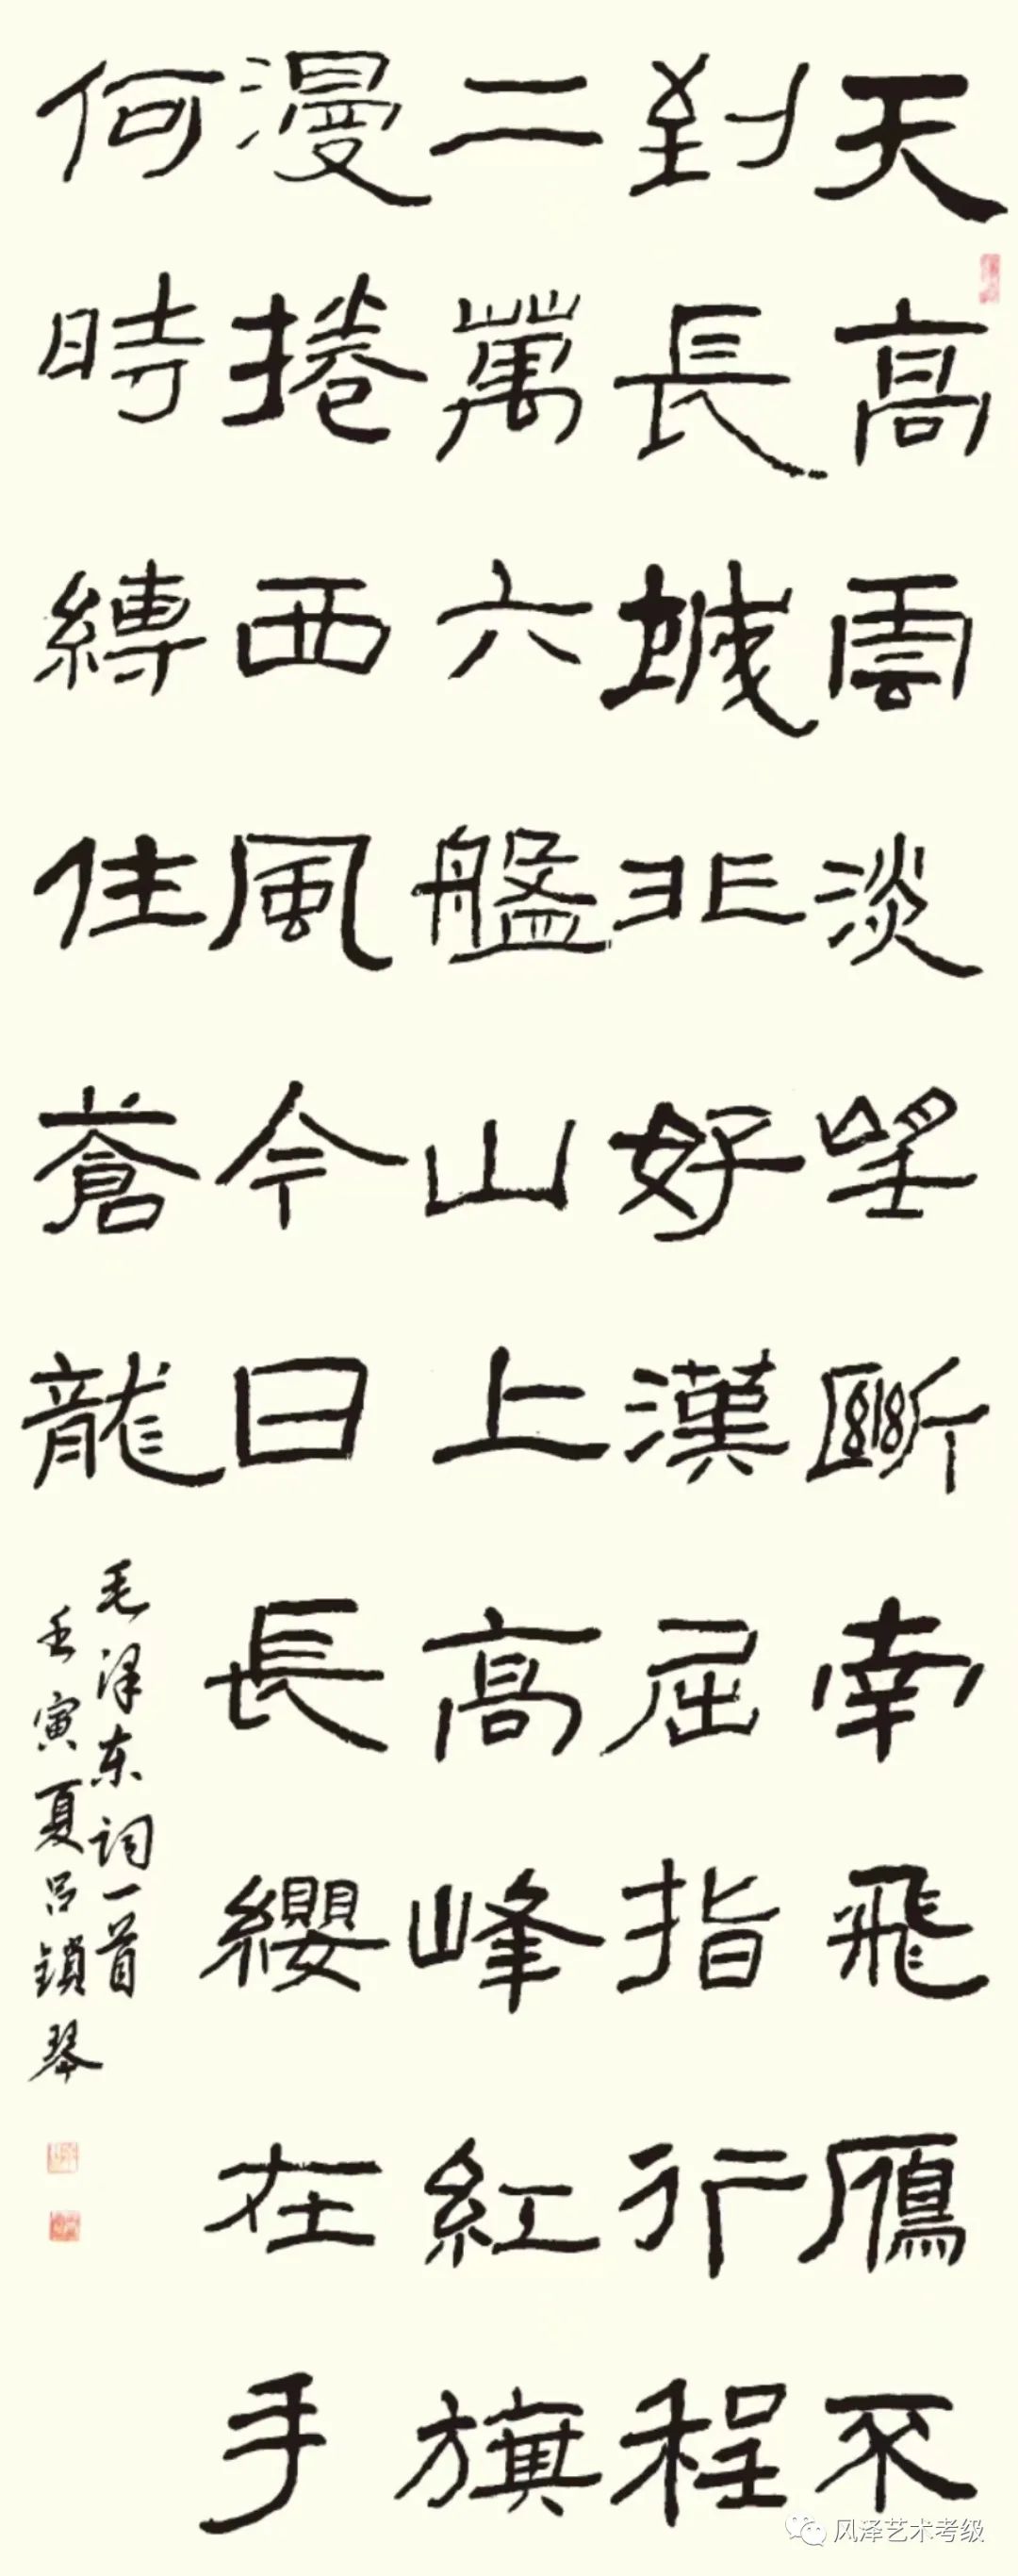 天高雲淡望斷南飛鴈不
到長城非好漢屈指行程
二萬六盤山上高峰紅旗
漫捲西風今日長纓在手
何時縛住蒼龍
毛泽东词一首
壬寅夏吕鎖琴
风泽艺术考级